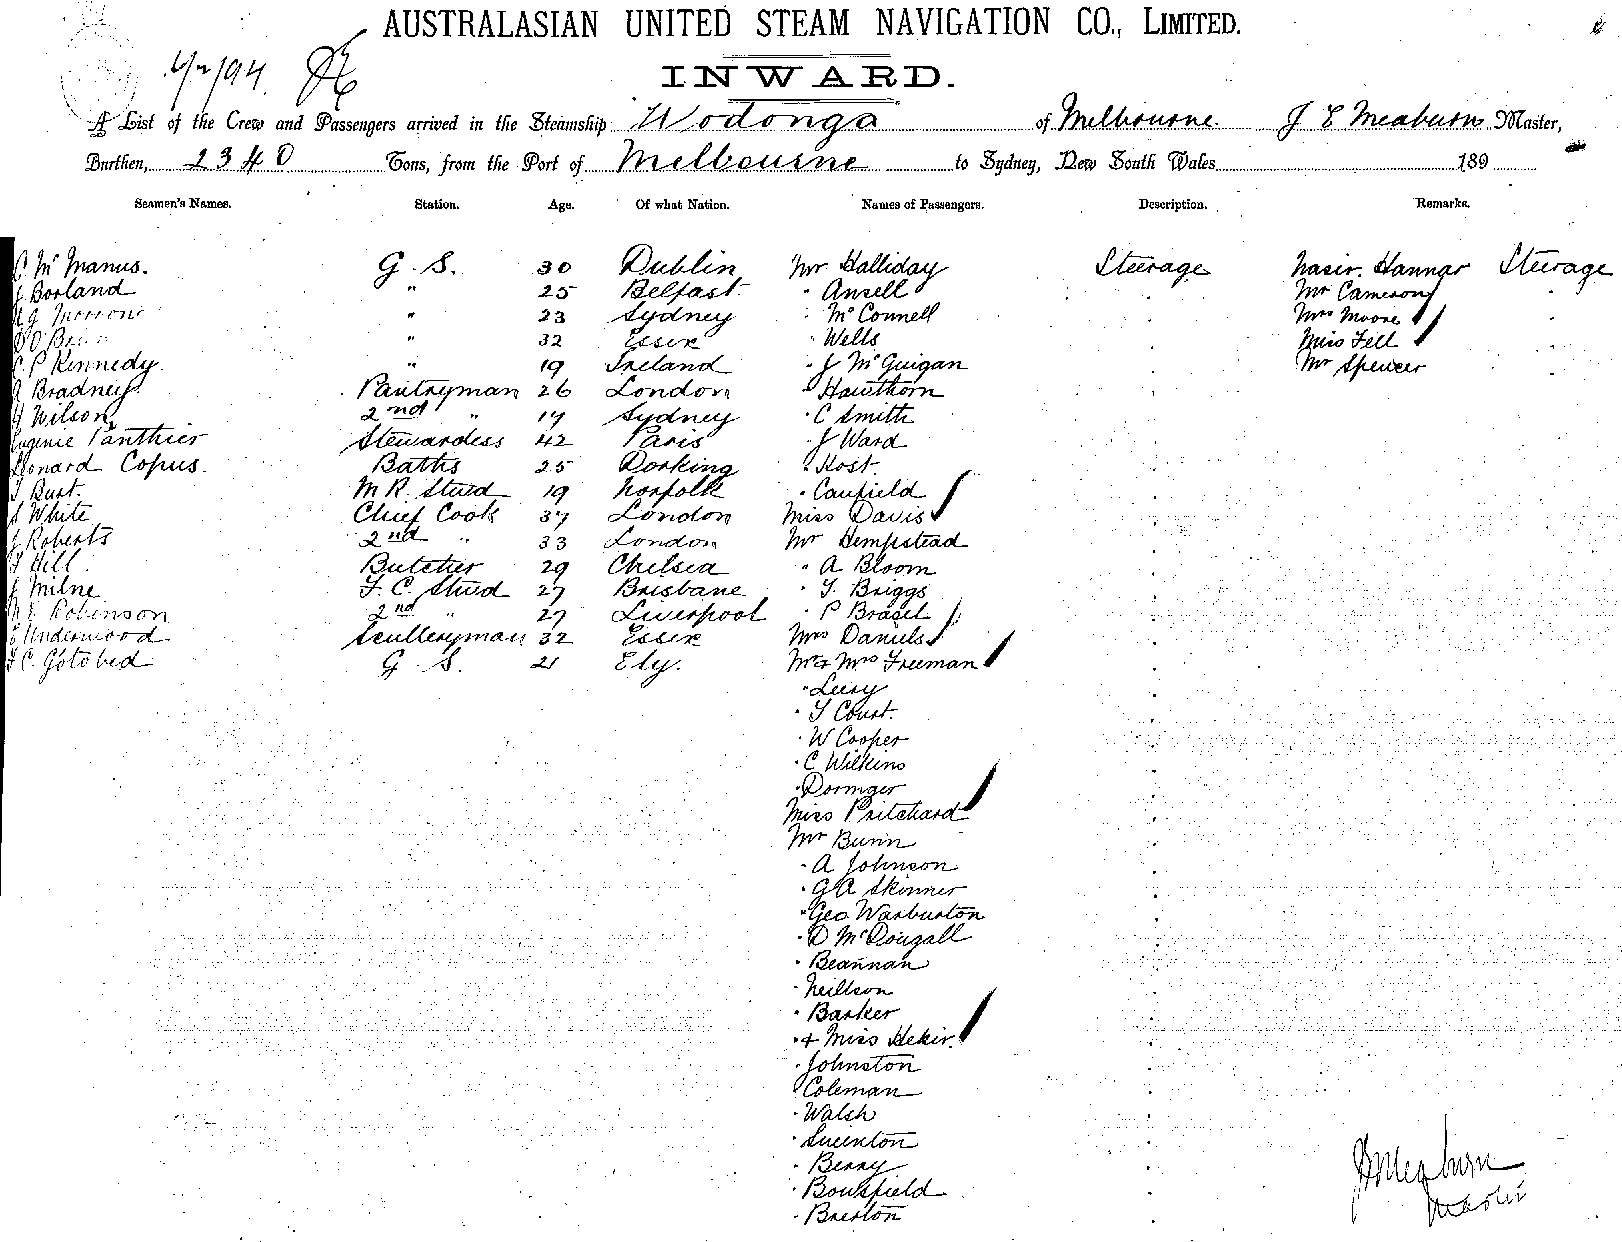 AUSTRALASIAN UNITED STEAM NAVIGATION CO., LIMITED.
INWARD.
A List of the Crew and Passengers arrived in the Steamship Wodonga of Melbourne J E Meaburn Master,
Burthen, 2340 Tons, from the Port of Melbourne to Sydney, New South Wales 189
Seamen's Names. Station. Age. Of what Nation. Names of Passengers. Description. Remarks.
C McManus. G.S. 30 Dublin Mr Halliday Steerage Nasir. Hannar Steerage
J Borland " 25 Belfast " Ansell Mr Cameron
" 23 Sydney " McConnell Mrs Moore
" 32 Essex " Wells Miss Fell
C P Kennedy. " 19 Ireland " J McGuigan Mr Spencer
A Bradney. Pantryman 26 London " Hawthorn
H Wilson 2nd " 19 Sydney " C Smith
Eugenie Panthier Stewardess 42 Paris " J Ward
Leonard Copus. Baths 25 Dorking " Host.
T Burt. M R. Stwd 19 Norfolk " Caufield
S White Chief Cook 37 London Miss Davis
J Roberts 2nd " 33 London Mr Hempstead
T Hill. Butcher 29 Chelsea " A Bloom
J Milne F. C. Stwd 27 Brisbane " T. Briggs
Robinson 2nd " 27 Liverpool " P Brasel
E Underwood Sculleryman 32 Essex Mrs Daniels
F C. Gotobed G S. 21 Ely. Mr & Mrs Freeman
" Leery
" T Court.
" W Cooper
" C Wilkins
" Dominger
Miss Pritchard
Mr Bunn
" A Johnson
" G A Skinner
" Geo Warburton
" D McDougall
" Beannan
" Neillson
" Barker
" & Miss Hekir.
" Johnston
" Coleman
" Walsh
" Swenton
" Berry
" Bousfield
" Brerton
J E Meaburn
Master